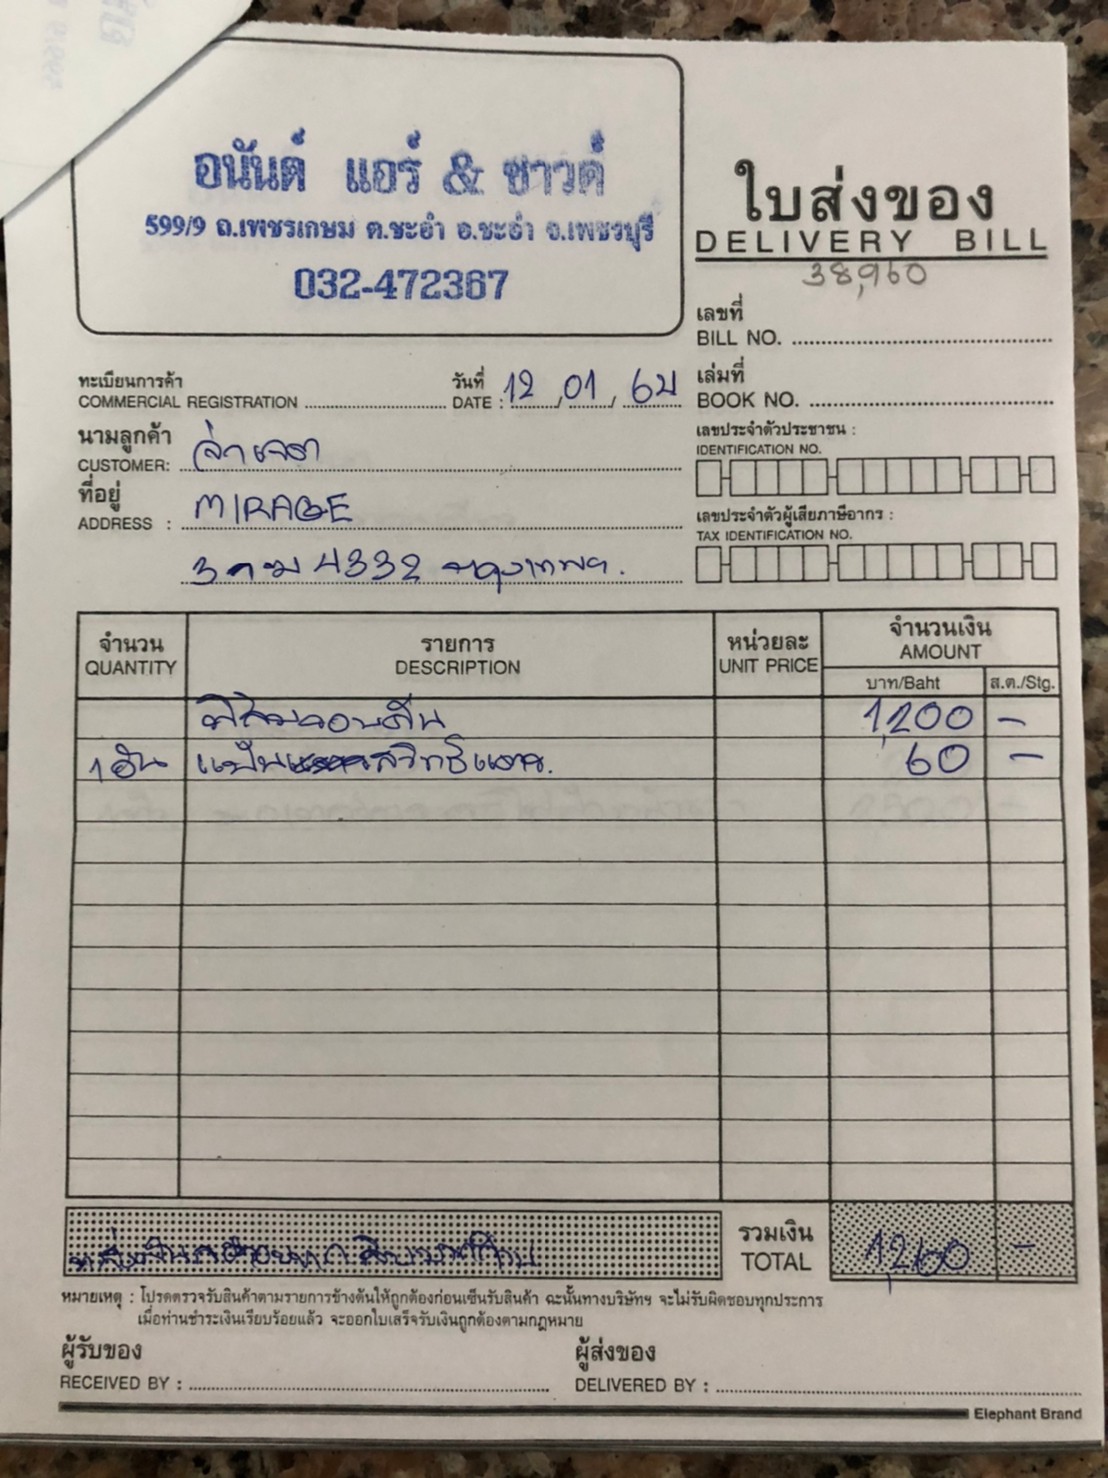 อนันต์ แอร์ & ซาวด์
599/9 ถ.เพชรเกษม ต.ชะอำ อ.ชะอำ จ.เพชรบุรี
032-472367
ใบส่งของ
DELIVERY BILL
38,960
เลขที่
BILL NO.
ทะเบียนการค้า
COMMERCIAL REGISTRATION
วันที่
DATE : 12, 01, 62
เล่มที่
BOOK NO.
นามลูกค้า
CUSTOMER:
เลขประจำตัวประชาชน :
IDENTIFICATION NO.
ที่อยู่
ADDRESS : MIRAGE
เลขประจำตัวผู้เสียภาษีอากร :
TAX IDENTIFICATION NO.
4332 กรุงเทพฯ.
จำนวน
QUANTITY
รายการ
DESCRIPTION
หน่วยละ
UNIT PRICE
จำนวนเงิน
AMOUNT
บาท/Baht
ส.ต./Stg.
1,200 -
1 อัน แป้นสวิทธิ์ 60 -
รวมเงิน
TOTAL
1,260 -
หมายเหตุ : โปรดตรวจรับสินค้าตามรายการข้างต้นให้ถูกต้องก่อนเซ็นรับสินค้า ฉะนั้นทางบริษัทฯ จะไม่รับผิดชอบทุกประการ
เมื่อท่านชำระเงินเรียบร้อยแล้ว จะออกใบเสร็จรับเงินถูกต้องตามกฎหมาย
ผู้รับของ
RECEIVED BY :
ผู้ส่งของ
DELIVERED BY :
Elephant Brand